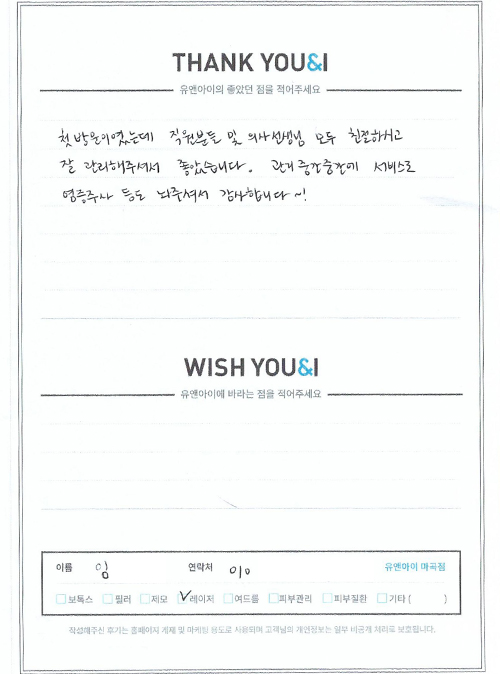 THANK YOU&I
유앤아이의 좋았던 점을 적어주세요
첫방문이였는데 직원분들 및 의사선생님 모두 친절하시고
잘 관리해주셔서 좋았습니다. 관리중간중간에 서비스로
염증주사 등도 놔주셔서 감사합니다~!
WISH YOU&I
유앤아이에 바라는 점을 적어주세요
이름 임 연락처 010 유앤아이 마곡점
보톡스 필러 제모 레이저 여드름 피부관리 피부질환 기타 ( )
작성해주신 후기는 홈페이지 게재 및 마케팅 용도로 사용되며 고객님의 개인정보는 일부 비공개 처리로 보호됩니다.